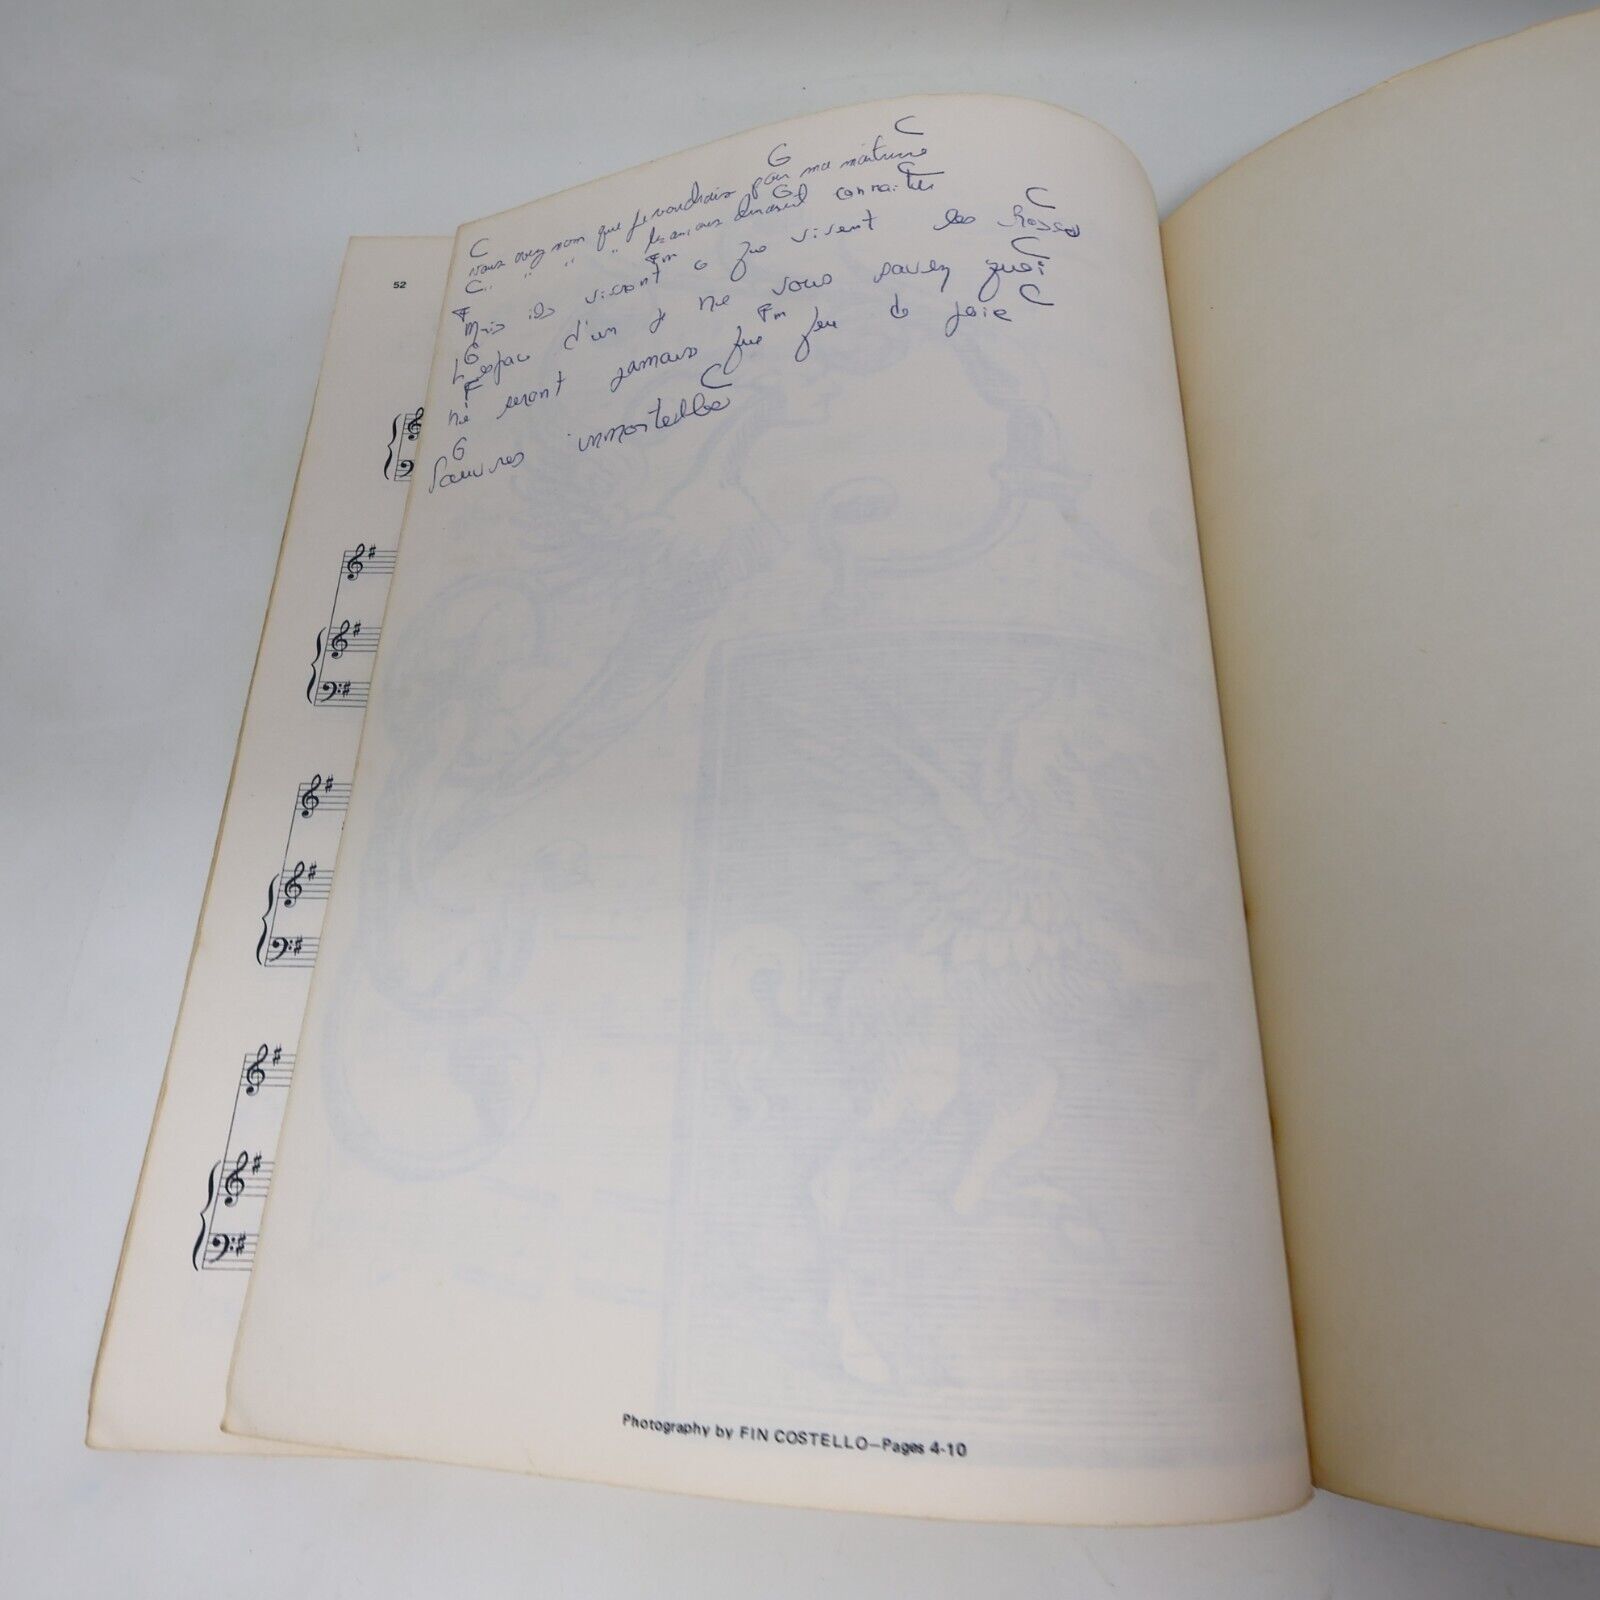 52
G C
C
vous avez nom que je voudrais pour ma maitresse
C " " " " les amours devraient connaitre
G C
F Fm C
Mais ils vivent que vivent les Roses
G C
L'espace d'un je ne vous savez quoi
F Fm C
ne seront jamais que feu de joie
G C
Pauvres immortelle
Photography by FIN COSTELLO—Pages 4-10